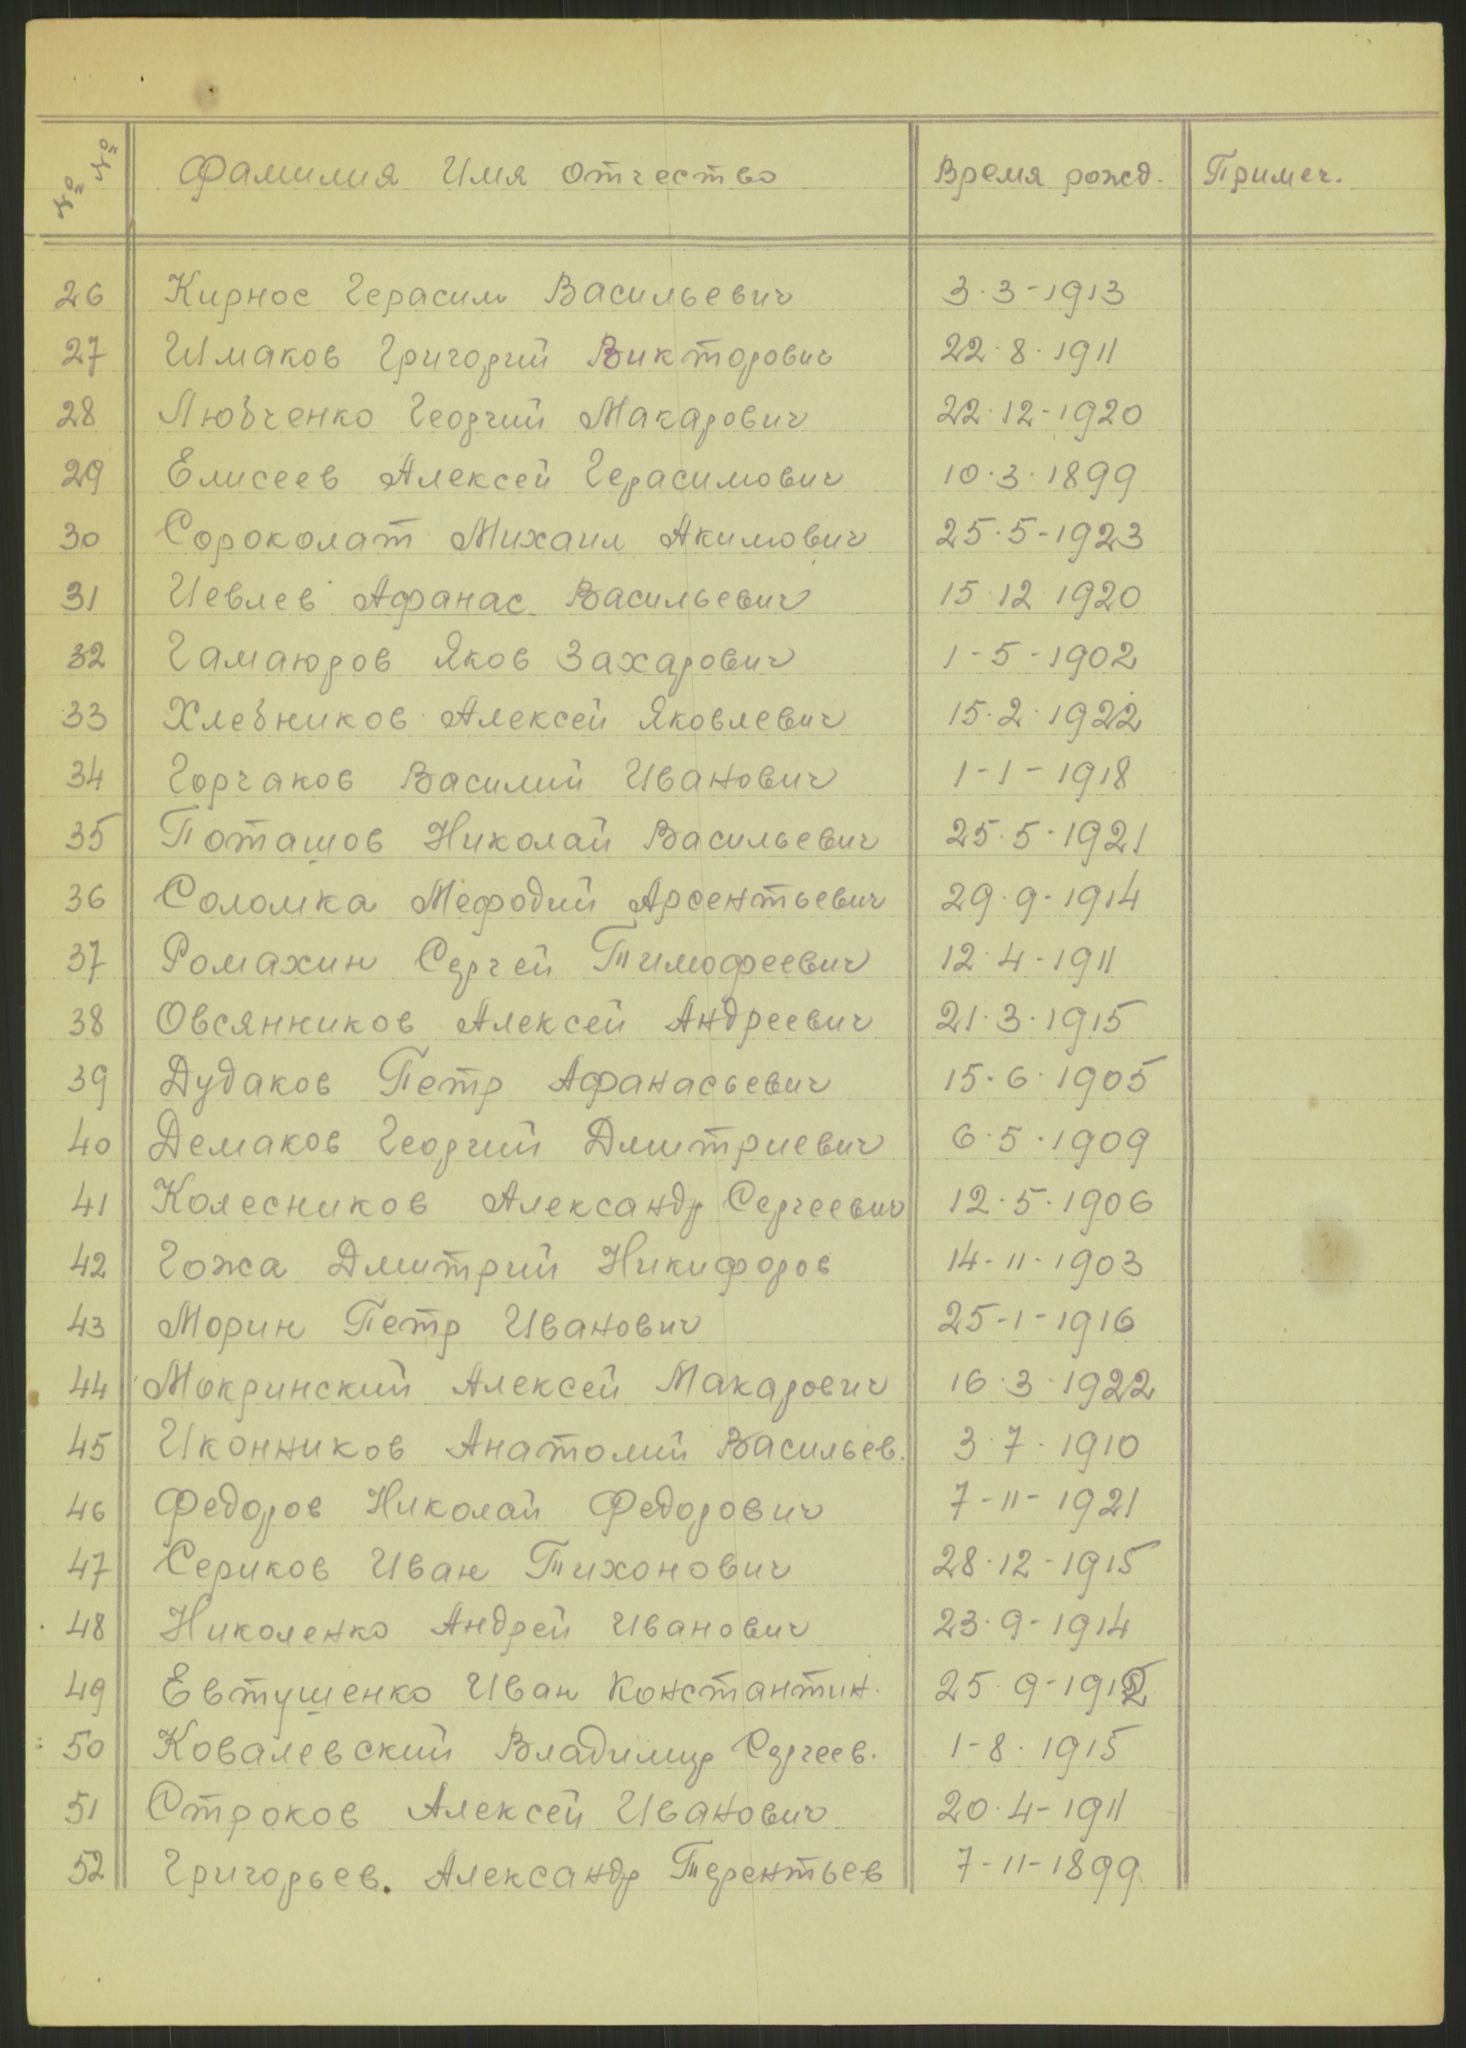 № № Фамилия Имя Отчество Время рожд. Примеч.
26 Кирнос Герасим Васильевич 3·3-1913
27 Шмаков Григорий Викторович 22·8·1911
28 Любченко Георгий Макарович 22·12-1920
29 Елисеев Алексей Герасимович 10·3·1899
30 Сороколат Михаил Акимович 25·5-1923
31 Иевлев Афанас. Васильевич 15·12 1920
32 Гамаюров Яков Захарович 1-5-1902
33 Хлебников Алексей Яковлевич 15·2·1922
34 Горчаков Василий Иванович 1-1-1918
35 Поташов Николай Васильевич 25·5·1921
36 Соломка Мефодий Арсентьевич 29·9·1914
37 Ромахин Сергей Тимофеевич 12·4-1911
38 Овсянников Алексей Андреевич 21·3·1915
39 Дудаков Петр Афанасьевич 15·6·1905
40 Демаков Георгий Дмитриевич 6·5·1909
41 Колесников Александр Сергеевич 12·5·1906
42 Гожа Дмитрий Никифоров 14-11·1903
43 Морин Петр Иванович 25-1-1916
44 Мокринский Алексей Макарович 16·3·1922
45 Иконников Анатолий Васильев. 3·7·1910
46 Федоров Николай Федорович 7-11-1921
47 Сериков Иван Тихонович 28·12-1915
48 Николенко Андрей Иванович 23·9-1914
49 Евтушенко Иван Константин. 25·9-1912
50 Ковалевский Владимир Сергеев. 1-8·1915
51 Строков Алексей Иванович 20·4-1911
52 Григорьев. Александр Терентьев 7-11-1899